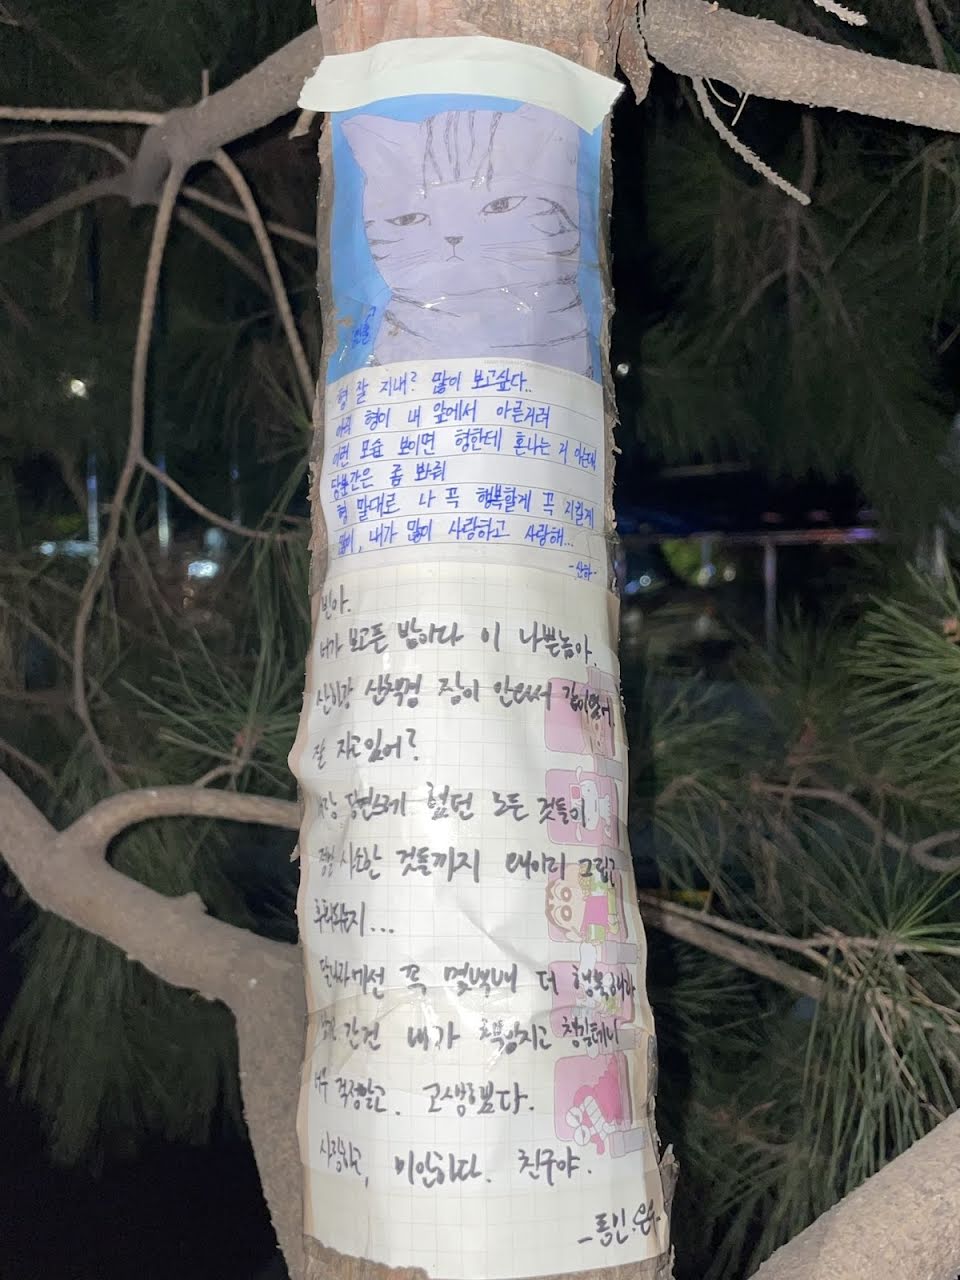 형 잘 지내? 많이 보고싶다..
형이 내 앞에서 아른거려
이런 모습 보이면 형한테 혼나는 거 아는데
당분간은 좀 봐줘
형 말대로 나 꼭 행복할게 꼭 지킬게
내가 많이 사랑하고 사랑해...
-산하-
빈아.
너가 보고픈 밤이다 이 나쁜놈아.
산하랑 산책겸 잠이 안와서 같이왔어.
잘 자고있어?
당연스레 했던 모든 것들이
사소한 것들까지 왜이리 그립고
후회되는지...
달나라에선 꼭 몇백배 더 행복해라
간건 내가 책임지고 챙길테니
너무 걱정말고. 고생했다.
사랑하고, 미안하다. 친구야.